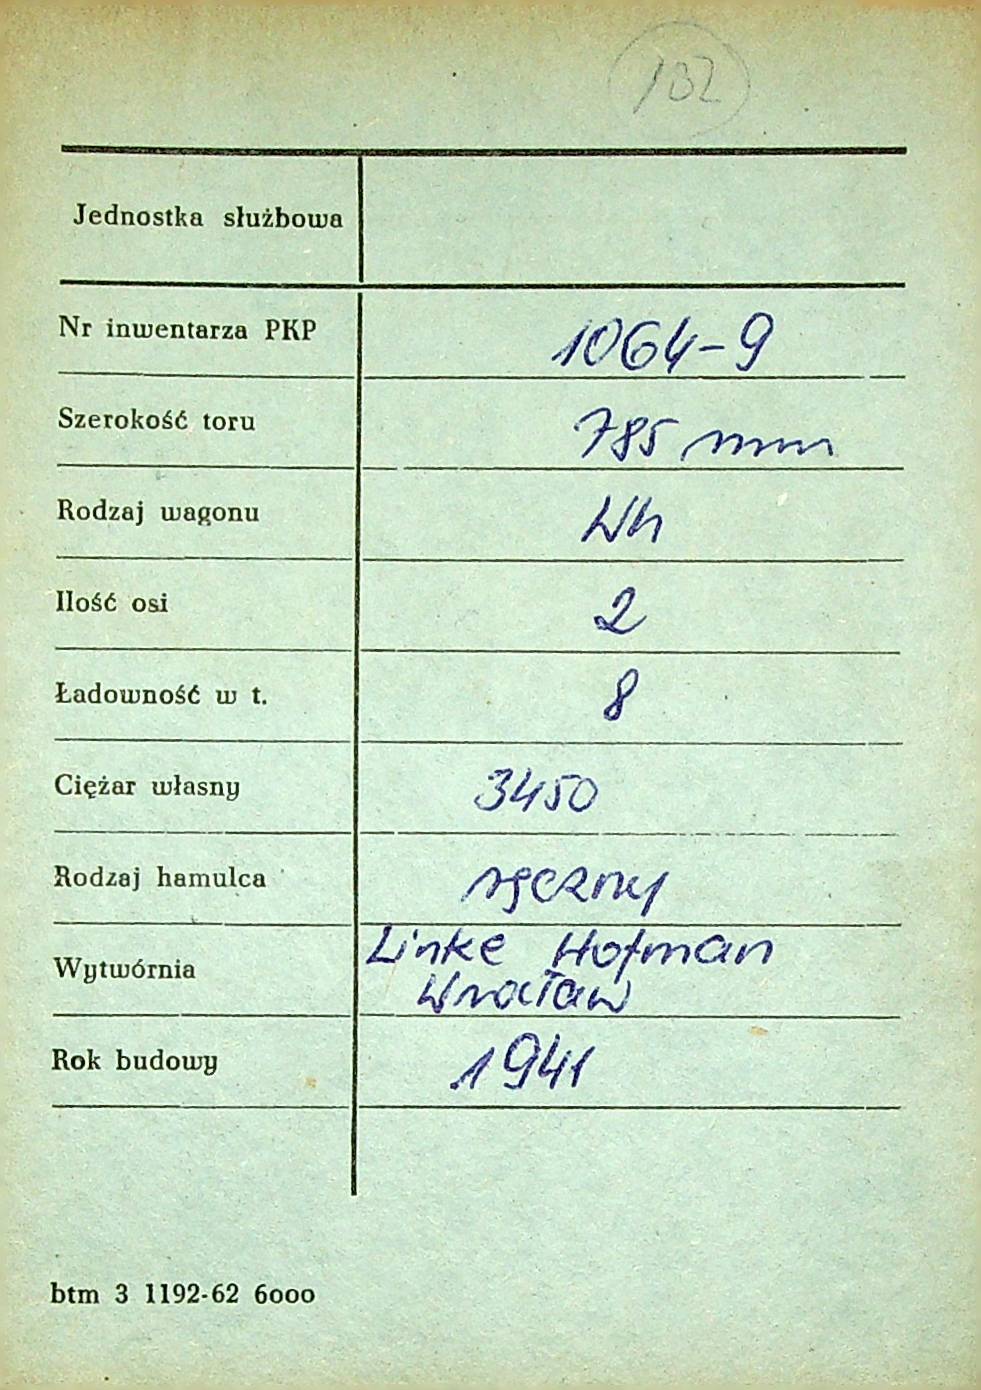 132
Jednostka służbowa
Nr inwentarza PKP 1064-9
Szerokość toru 785 mm
Rodzaj wagonu Wh
Ilość osi 2
Ładowność w t. 8
Ciężar własny 3450
Rodzaj hamulca ręczny
Wytwórnia Linke Hofman
Wrocław
Rok budowy 1941
btm 3 1192-62 6000